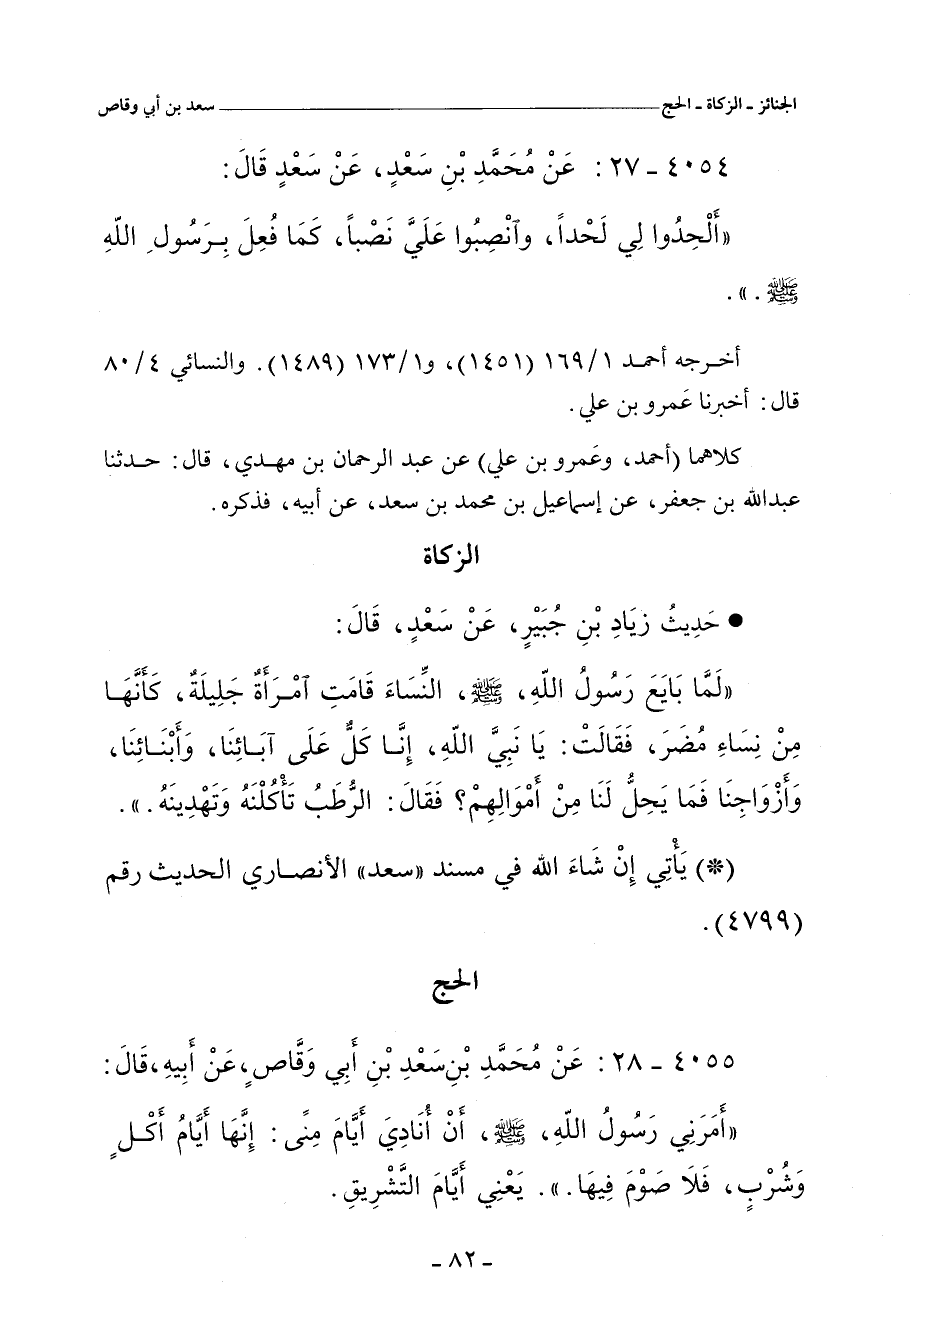 الجنائز - الزكاة - الحج ـــــــــ سعد بن أبي وقاص
٤٠٥٤ - ٢٧ : عَنْ مُحَمَّدِ بْنِ سَعْدٍ، عَنْ سَعْدٍ قَالَ:
«أَلْحِدُوا لِي لَحْداً، وٱنْصِبُوا عَلَيَّ نَصْباً، كَمَا فُعِلَ بِرَسُولِ اللّهِ
ﷺ . ».
أخرجه أحمد ١/١٦٩ (١٤٥١)، و١/١٧٣ (١٤٨٩). والنسائي ٤/٨٠
قال: أخبرنا عَمرو بن علي.
كلاهما (أحمد، وعَمرو بن علي) عن عبد الرحمان بن مهدي، قال: حدثنا
عبدالله بن جعفر، عن إسماعيل بن محمد بن سعد، عن أبيه، فذكره.
الزكاة
● حَدِيثُ زِيَادِ بْنِ جُبَيْرٍ، عَنْ سَعْدٍ، قَالَ:
«لَمَّا بَايَعَ رَسُولُ اللّهِ، ﷺ، النِّسَاءَ قَامَتِ ٱمْرَأَةٌ جَلِيلَةٌ، كَأَنَّهَا
مِنْ نِسَاءِ مُضَرَ، فَقَالَتْ: يَا نَبِيَّ اللّهِ، إِنَّا كَلٌّ عَلَى آبَائِنَا، وَأَبْنَائِنَا،
وَأَزْوَاجِنَا فَمَا يَحِلُّ لَنَا مِنْ أَمْوَالِهِمْ؟ فَقَالَ: الرُّطَبُ تَأْكُلْنَهُ وَتَهْدِينَهُ.».
(*) يَأْتِي إِنْ شَاءَ الله في مسند «سعد» الأنصاري الحديث رقم
(٤٧٩٩).
الحج
٤٠٥٥ - ٢٨ : عَنْ مُحَمَّدِ بْنِ سَعْدِ بْنِ أَبِي وَقَّاصٍ، عَنْ أَبِيهِ، قَالَ:
«أَمَرَنِي رَسُولُ اللّهِ، ﷺ، أَنْ أُنَادِيَ أَيَّامَ مِنًى: إِنَّهَا أَيَّامُ أَكْلٍ
وَشُرْبٍ، فَلَا صَوْمَ فِيهَا.». يَعْنِي أَيَّامَ التَّشْرِيقِ.
- ٨٢ -